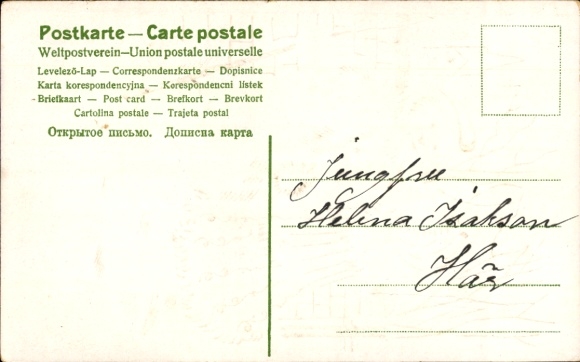 Postkarte — Carte postale
Weltpostverein—Union postale universelle
Levelező-Lap — Correspondenzkarte — Dopisnice
Karta korespondencyjna — Korespondencni lístek
Briefkaart — Post card — Brefkort — Brevkort
Cartolina postale — Trajeta postal
Открытое письмо. Дописна карта
Jungfru
Helena Isakson
Här